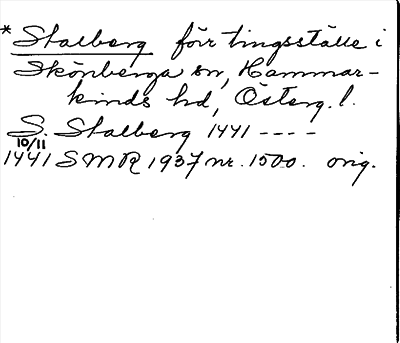 * Stalberg förr tingsställe i
Skönberga sn, Hammar-
kinds hd, Österg. l.
S. Stalberg 1441 ----
10/11
1441 SMR 1937 nr. 1500. orig.